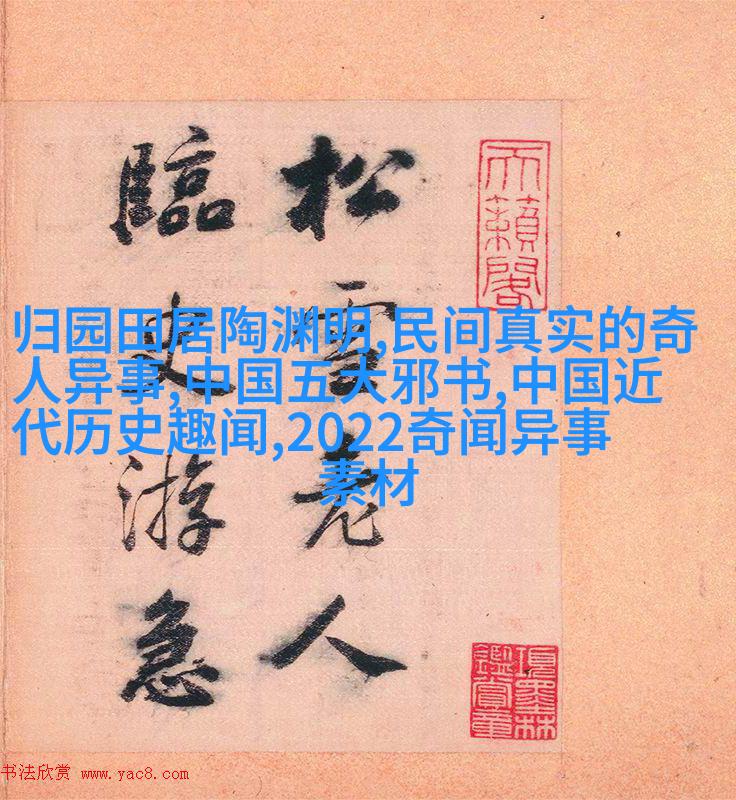 松雪老人
臨史游急
天籟閣
归园田居陶渊明,民间真实的奇
人异事,中国五大邪书,中国近
代历史趣闻,2022奇闻异事
素材
項墨林
鑑賞章
书法欣赏 www.yac8.com